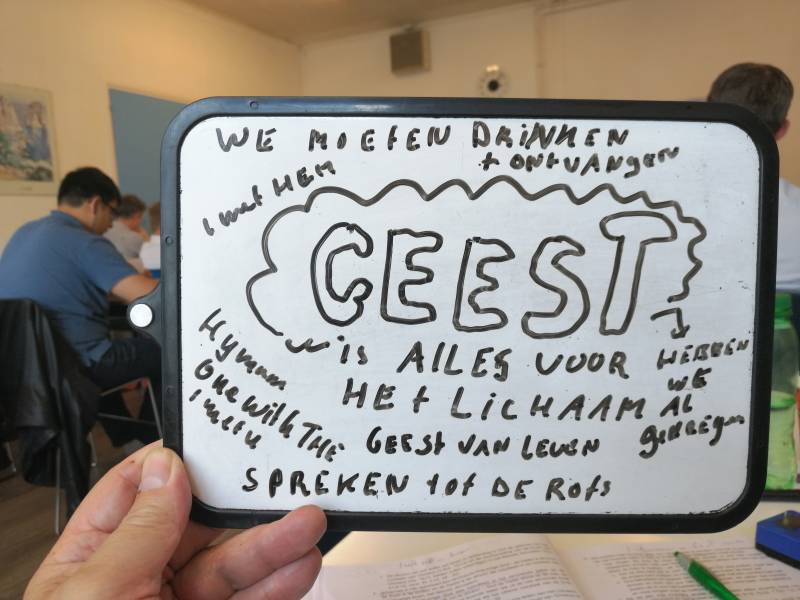 WE MOETEN DRINKEN
+ ONTVANGEN
1 met HEM
GEEST
is ALLES VOOR
HET LICHAAM
HEBBEN
WE
AL
gekregen
GEEST VAN LEVEN
SPREKEN tot DE Rots
Hymn
one with THE